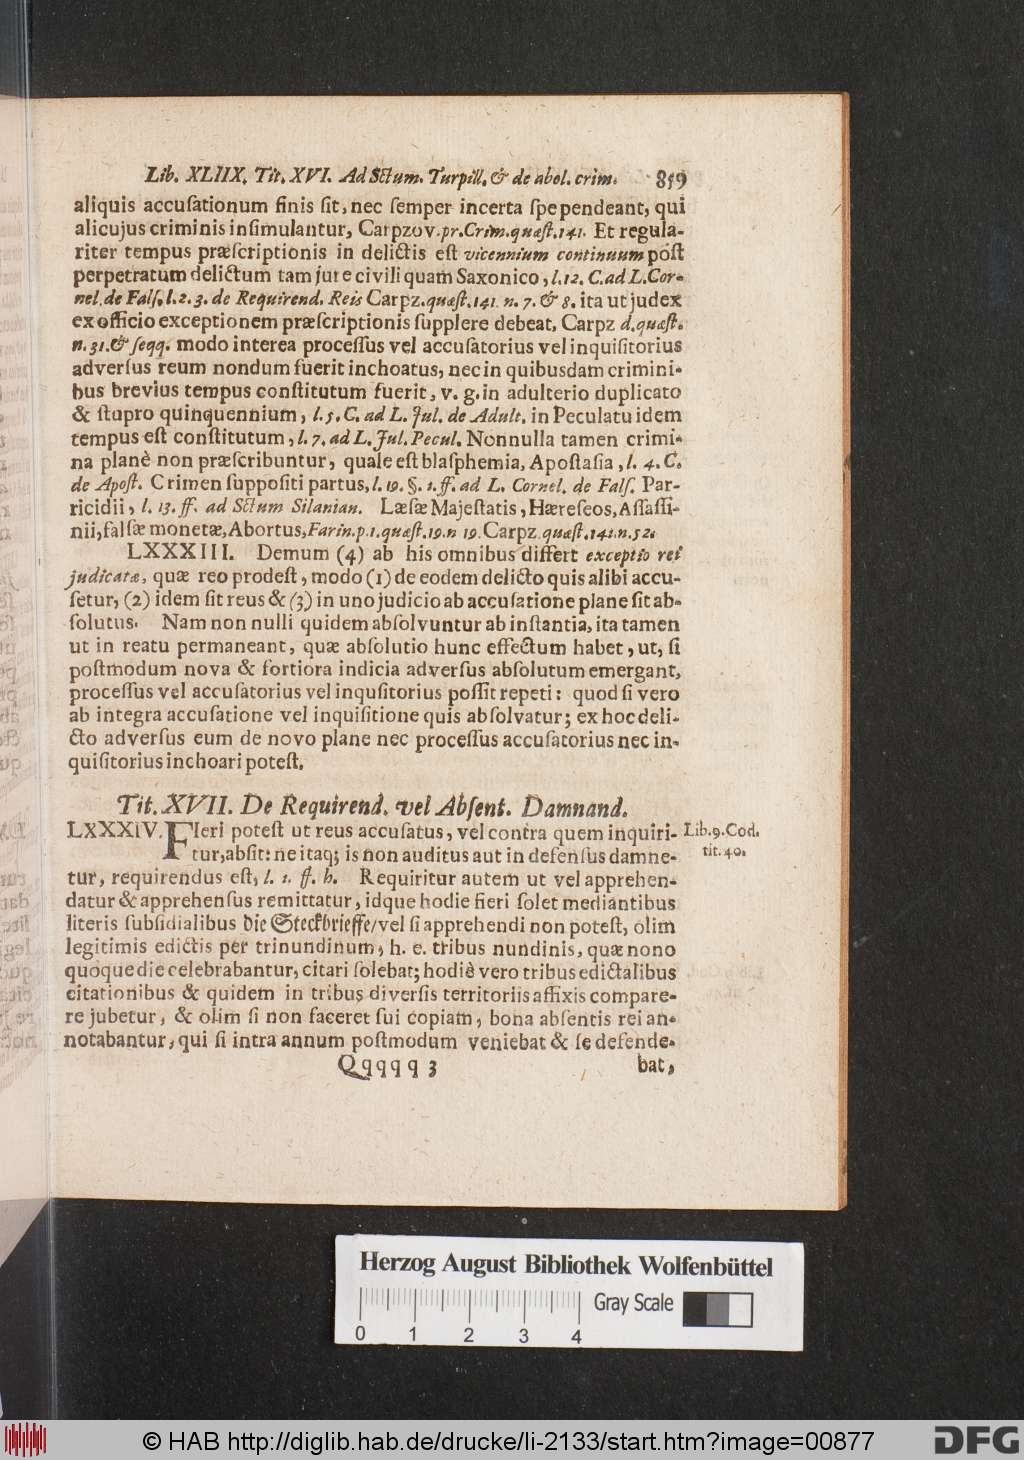 Lib. XLIIX. Tit. XVI. Ad Sctum. Turpill. & de abol. crim. 859
aliquis accuſationum finis ſit, nec ſemper incerta ſpe pendeant, qui
alicujus criminis inſimulantur, Carpzov. pr. Crim. quæſt. 141. Et regula-
riter tempus præſcriptionis in delictis eſt vicennium continuum poſt
perpetratum delictum tam jure civili quam Saxonico, l. 12. C. ad L. Cor-
nel. de Falſ. l. 2. 3. de Requirend. Reis Carpz. quæſt. 141. n. 7. & 8. ita ut judex
ex officio exceptionem præſcriptionis ſupplere debeat, Carpz d. quæſt.
n. 31. & ſeqq. modo interea proceſſus vel accuſatorius vel inquiſitorius
adverſus reum nondum fuerit inchoatus, nec in quibusdam crimini-
bus brevius tempus conſtitutum fuerit, v. g. in adulterio duplicato
& ſtupro quinquennium, l. 5. C. ad L. Jul. de Adult. in Peculatu idem
tempus eſt conſtitutum, l. 7. ad L. Jul. Pecul. Nonnulla tamen crimi-
na planè non præſcribuntur, quale eſt blaſphemia, Apoſtaſia, l. 4. C.
de Apoſt. Crimen ſuppoſiti partus, l. 19. §. 1. ff. ad L. Cornel. de Falſ. Par-
ricidii, l. 13. ff. ad Sctum Silanian. Læſæ Majeſtatis, Hæreſeos, Aſſaſſi-
nii, falſæ monetæ, Abortus, Farin. p. 1. quæſt. 19. n 19. Carpz. quæſt. 141. n. 52.
LXXXIII. Demum (4) ab his omnibus differt exceptio rei
judicatæ, quæ reo prodeſt, modo (1) de eodem delicto quis alibi accu-
ſetur, (2) idem ſit reus & (3) in uno judicio ab accuſatione plane ſit ab-
ſolutus. Nam non nulli quidem abſolvuntur ab inſtantia, ita tamen
ut in reatu permaneant, quæ abſolutio hunc effectum habet, ut, ſi
poſtmodum nova & fortiora indicia adverſus abſolutum emergant,
proceſſus vel accuſatorius vel inquſitorius poſſit repeti: quod ſi vero
ab integra accuſatione vel inquiſitione quis abſolvatur; ex hoc deli-
cto adverſus eum de novo plane nec proceſſus accuſatorius nec in-
quiſitorius inchoari poteſt.
Tit. XVII. De Requirend. vel Abſent. Damnand.
LXXXIV. FIeri poteſt ut reus accuſatus, vel contra quem inquiri- Lib. 9. Cod.
tur, abſit: ne itaq; is non auditus aut indefenſus damne- tit. 40.
tur, requirendus eſt, l. 1. ff. h. Requiritur autem ut vel apprehen-
datur & apprehenſus remittatur, idque hodie fieri ſolet mediantibus
literis ſubſidialibus die Steckbrieffe/ vel ſi apprehendi non poteſt, olim
legitimis edictis per trinundinum, h. e. tribus nundinis, quæ nono
quoque die celebrabantur, citari ſolebat; hodiè vero tribus edictalibus
citationibus & quidem in tribus diverſis territoriis affixis compare-
re jubetur, & olim ſi non faceret ſui copiam, bona abſentis rei an-
notabantur, qui ſi intra annum poſtmodum veniebat & ſe defende-
Qqqqq 3 bat,
Herzog August Bibliothek Wolfenbüttel
Gray Scale
0 1 2 3 4
© HAB http://diglib.hab.de/drucke/li-2133/start.htm?image=00877
DFG